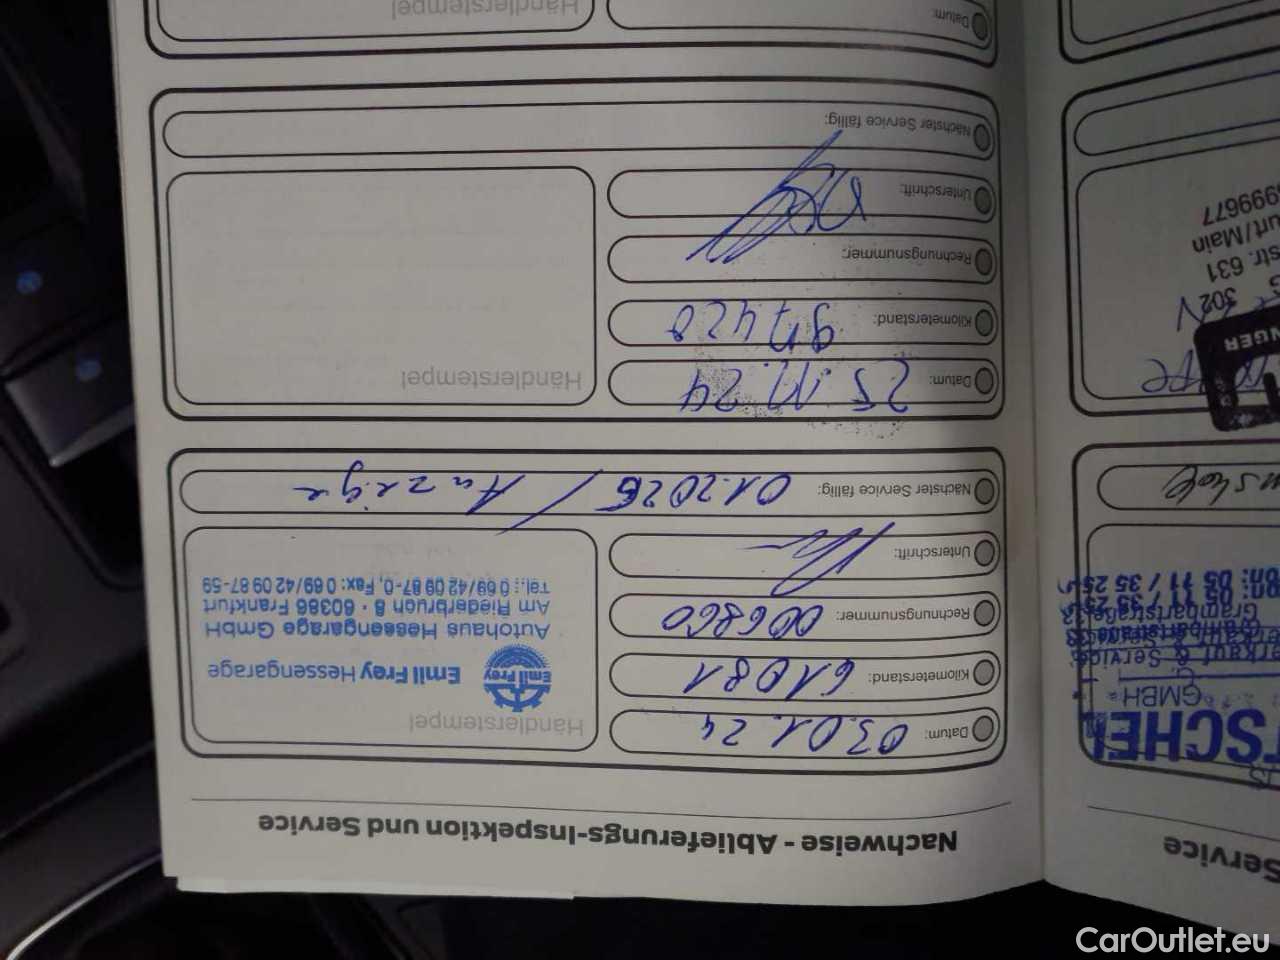 Nachweise - Ablieferungs-Inspektion und Service
Datum: 03.01.24
Kilometerstand: 61081
Rechnungsnummer: 006860
Unterschrift:
Nächster Service fällig: 01.2026 / Anzeige
Händlerstempel
Emil Frey
Emil Frey Hessengarage
Autohaus Hessengarage GmbH
Am Riederbruch 8 · 60386 Frankfurt
Tel.: 0 69/42 09 87-0, Fax: 0 69/42 09 87-59
Datum: 25.11.24
Kilometerstand: 97420
Rechnungsnummer:
Unterschrift:
Nächster Service fällig:
Händlerstempel
Datum:
Händlerstempel
Service
TSCHEL
GMBH
erkauf & Service
05 11 / 35 25
NGER
302
str. 631
urt/Main
999677
CarOutlet.eu